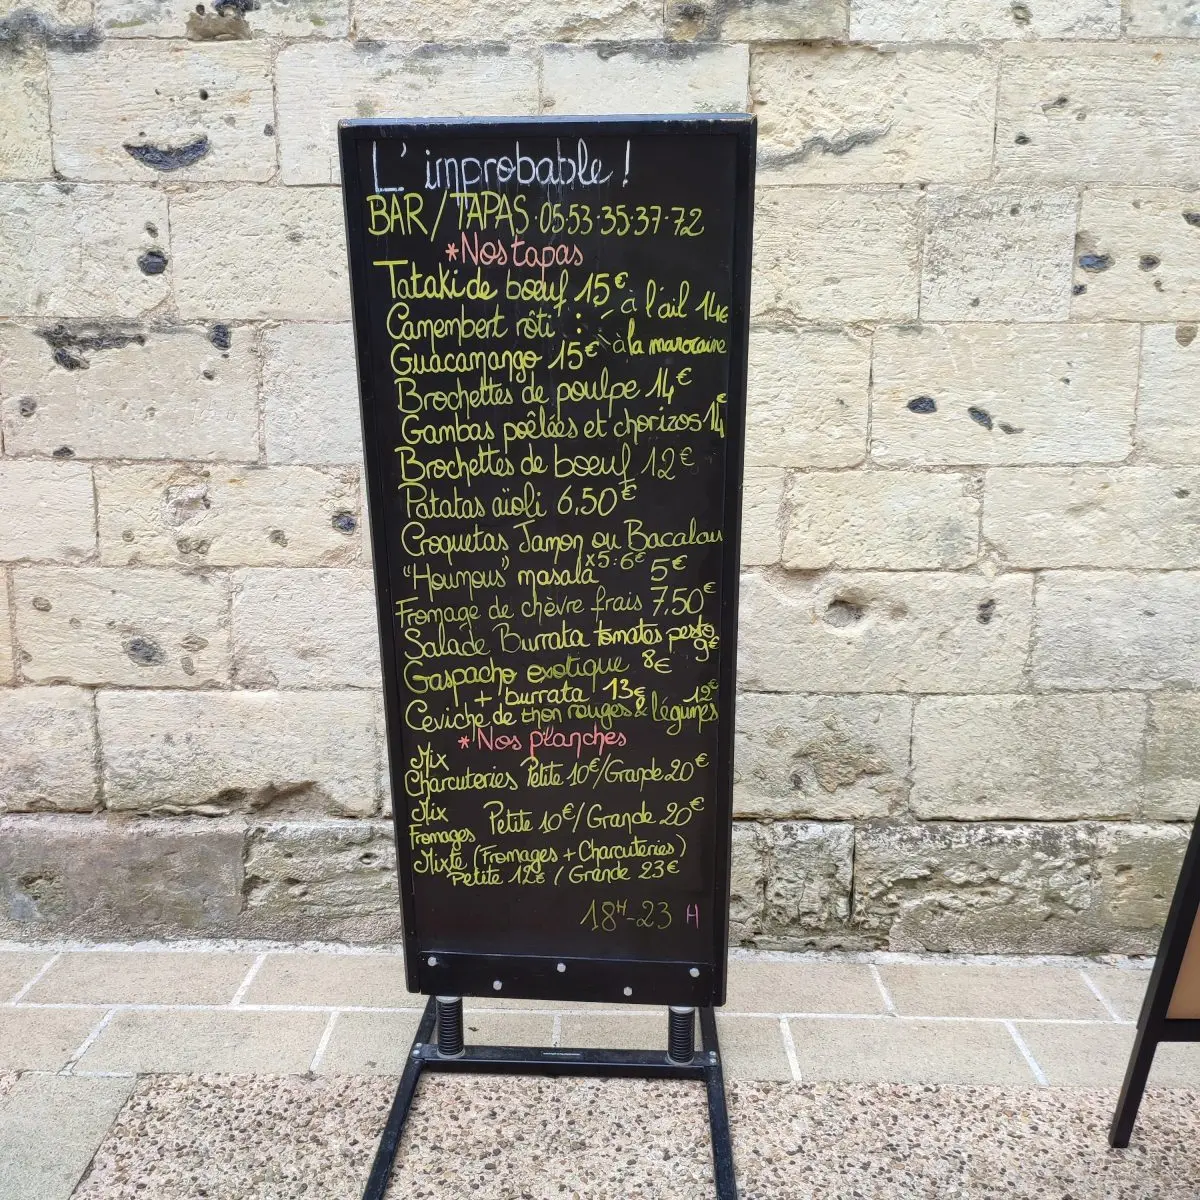 L'improbable !
BAR / TAPAS · 05·53·35·37·72
*Nos tapas
Tataki de boeuf 15€
Camembert rôti : - à l'ail 14€
- à la marocaine
Guacamango 15€
Brochettes de poulpe 14€
Gambas poêlées et chorizos 14€
Brochettes de boeuf 12€
Patatas aïoli 6,50€
Croquetas Jamon ou Bacalau
x5 : 6€
"Houmous" masala 5€
Fromage de chèvre frais 7,50€
Salade Burrata tomates pesto
9€
Gaspacho exotique 8€
+ burrata 13€
Ceviche de thon rouges & légumes 12€
*Nos planches
Mix
Charcuteries Petite 10€/Grande 20€
Mix
Fromages Petite 10€/Grande 20€
Mixte (Fromages + Charcuteries)
Petite 12€ / Grande 23€
18H-23 H